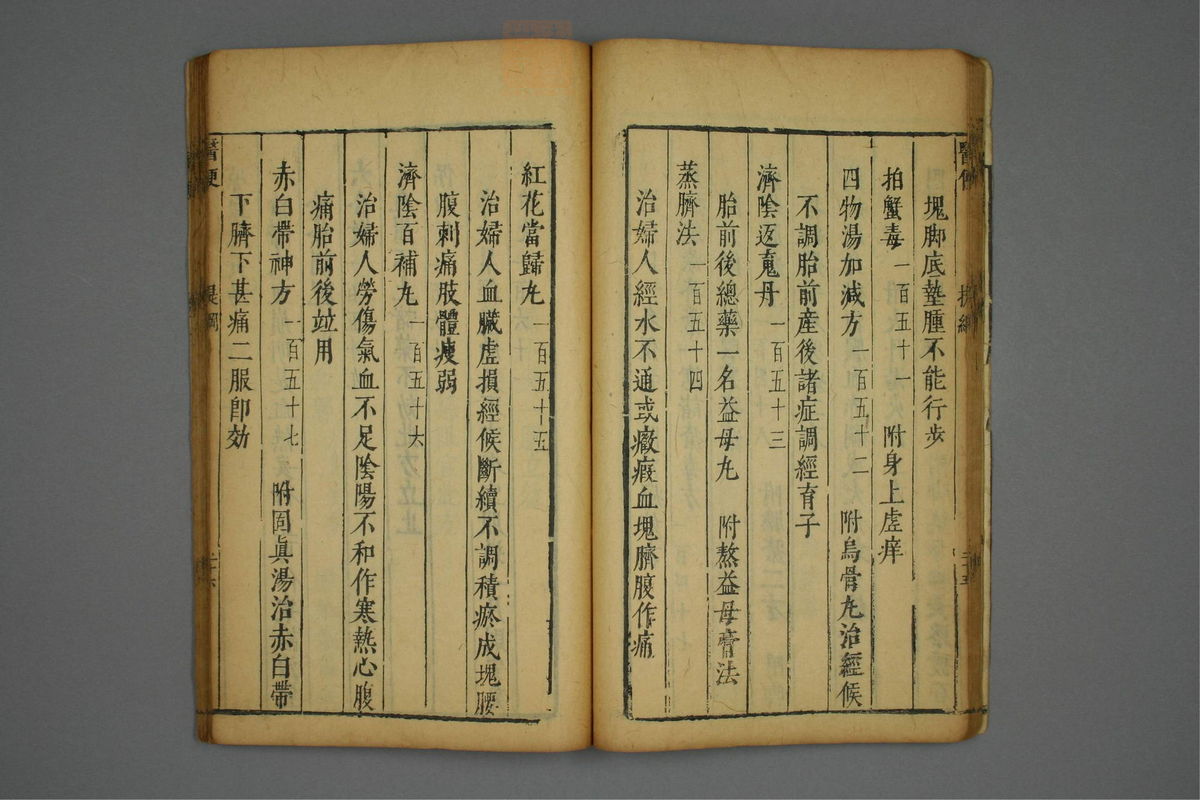 塊脚底墊腫不能行步
拍蟹毒 一百五十一 附身上虛痒
四物湯加減方 一百五十二 附烏骨丸治經候
不調胎前産後諸症調經育子
濟陰返䰟丹 一百五十三
胎前後總藥一名益母丸 附熬益母膏法
蒸臍法 一百五十四
治婦人經水不通或癥瘕血塊臍腹作痛
紅花當歸丸 一百五十五
治婦人血臟虛損經候斷續不調積瘀成塊腰
腹刺痛肢體瘦弱
濟陰百補丸 一百五十六
治婦人勞傷氣血不足陰陽不和作寒熱心腹
痛胎前後竝用
赤白帶神方 一百五十七 附固眞湯治赤白帶
下臍下甚痛二服卽効
醫便
提綱
二十六